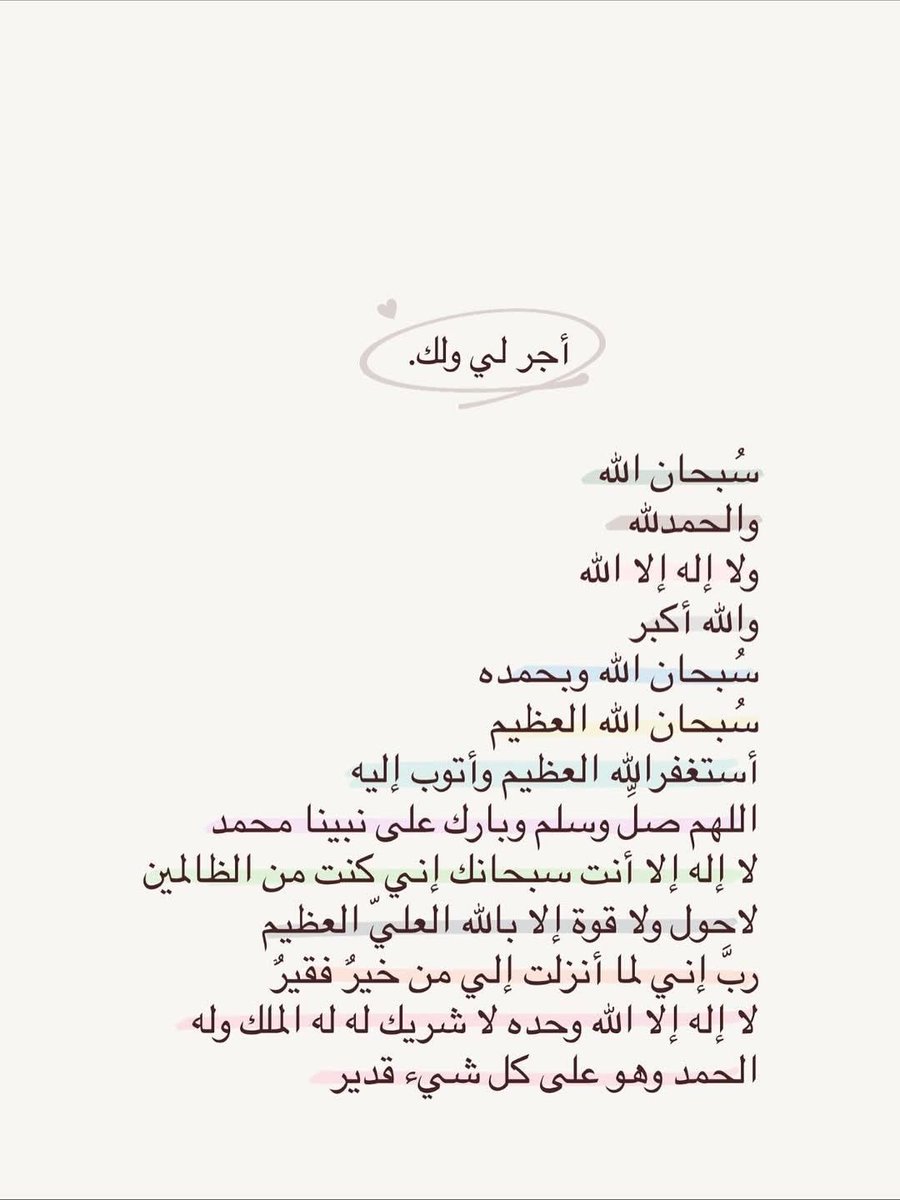 أجر لي ولك.
سُبحان الله
والحمدلله
ولا إله إلا الله
والله أكبر
سُبحان الله وبحمده
سُبحان الله العظيم
أستغفرالله العظيم وأتوب إليه
اللهم صلِّ وسلم وبارك على نبينا محمد
لا إله إلا أنت سبحانك إني كنت من الظالمين
لاحول ولا قوة إلا بالله العليّ العظيم
ربَّ إني لما أنزلت إلي من خيرٌ فقيرٌ
لا إله إلا الله وحده لا شريك له له الملك وله
الحمد وهو على كل شيء قدير